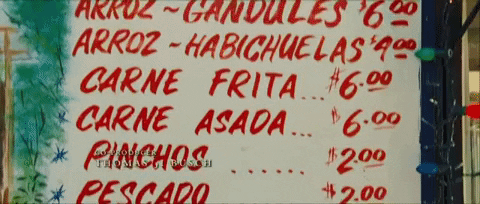 ARROZ~GANDULES $6.00
ARROZ-HABICHUELAS $4.00
CARNE FRITA... $6.00
CARNE ASADA... $6.00
PINCHOS ...... $2.00
CO-PRODUCER
THOMAS J. BUSCH
PESCADO $2.00